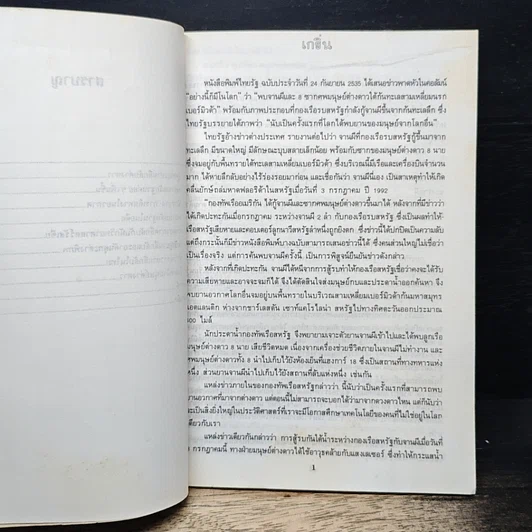 สารบาญ
เกริ่น
หนังสือพิมพ์ไทยรัฐ ฉบับประจำวันที่ 24 กันยายน 2535 ได้เสนอข่าวพาดหัวในคอลัมน์
"อย่างนี้ก็มีในโลก" ว่า "พบจานผีและ 8 ซากศพมนุษย์ต่างดาวใต้ก้นทะเลสามเหลี่ยมนรก
เบอร์มิวด้า" พร้อมกับภาพประกอบที่กองเรือรบสหรัฐกำลังกู้จานผีขึ้นจากก้นทะเลลึก ซึ่ง
ไทยรัฐบรรยายใต้ภาพว่า "นับเป็นครั้งแรกที่โลกได้พบยานของมนุษย์จากโลกอื่น"
ไทยรัฐอ้างข่าวต่างประเทศ รายงานต่อไปว่า จานผีที่กองเรือรบสหรัฐกู้ขึ้นมาจาก
ทะเลลึก มีขนาดใหญ่ มีลักษณะบุบสลายเล็กน้อย พร้อมกับซากของมนุษย์ต่างดาว 8 นาย
ซึ่งจมอยู่กับพื้นทรายใต้ทะเลสามเหลี่ยมเบอร์มิวด้า ซึ่งบริเวณนี้มีเรือและเครื่องบินจำนวน
มาก ได้หายลึกลับอย่างไร้ร่องรอยมาก่อน และเชื่อกันว่า จานผีนี้เอง เป็นสาเหตุทำให้เกิด
คลื่นยักษ์ถล่มหาดฟลอริด้าในสหรัฐเมื่อวันที่ 3 กรกฎาคม ปี 1992
"กองทัพเรืออเมริกัน ได้กู้จานผีและซากศพมนุษย์ต่างดาวขึ้นมาได้ หลังจากที่มีข่าวว่า
ได้เกิดปะทะกันเมื่อกรกฎาคม ระหว่างจานผี 2 ลำ กับกองเรือรบสหรัฐ ซึ่งเป็นผลทำให้เรือ
สหรัฐเสียหายและคอปเตอร์ถูกนาวีสหรัฐลำหนึ่งถูกยิงตก ซึ่งข่าวนี้ได้ปกปิดเป็นความลับ
แต่ถึงกระนั้นก็มีข่าวหนังสือพิมพ์บางฉบับสามารถเสนอข่าวนี้ได้ ซึ่งคนส่วนใหญ่ไม่เชื่อว่า
เป็นเรื่องจริง แต่การค้นพบจานผีครั้งนี้ เป็นการพิสูจน์ยืนยันข่าวดังกล่าว
หลังจากที่เกิดปะทะกัน จานผีได้หนีจากการสู้รบทำให้กองเรือสหรัฐเชื่อว่าคงจะได้รับ
ความเสียหายและอาจจะจมก็ได้ จึงได้ตัดสินใจส่งมนุษย์กบและประดาน้ำออกค้นหา จึง
พบยานอวกาศโลกอื่นจมอยู่บนพื้นทรายในบริเวณสามเหลี่ยมเบอร์มิวด้าก้นมหาสมุทร
แอตแลนติก ห่างจากชาร์เลสตัน เซาท์แคโรไลน่า สหรัฐไปทางทิศตะวันออกประมาณ
400 ไมล์
นักประดาน้ำกองทัพเรือสหรัฐ จึงพยายามเจาะยานจานผีเข้าไปและได้พบลูกเรือ
มนุษย์ต่างดาว 8 นาย เสียชีวิตหมด เนื่องจากเครื่องช่วยชีวิตภายในจานผีไม่ทำงาน และ
มนุษย์ต่างดาวทั้ง 8 นำไปเก็บไว้ยังห้องเย็นที่แฮงการ์ 18 ซึ่งเป็นสถานที่ทางทหารแห่ง
หนึ่ง ส่วนยานจานผีได้นำไปเก็บไว้ยังสถานที่ลับแห่งหนึ่ง เช่นกัน
แหล่งข่าวภายในของกองทัพเรือสหรัฐกล่าวว่า นี้นับว่าเป็นครั้งแรกที่สามารถพบ
ยานอวกาศที่มาจากต่างดาว แต่ตอนนี้ไม่สามารถจะบอกได้ว่ามาจากดาวดวงไหน แต่ก็นับว่า
จะเป็นสิ่งยิ่งใหญ่ในประวัติศาสตร์ที่เราจะมีโอกาสศึกษาเทคโนโลยีของคนที่ไม่ใช่อยู่ในโลก
เดียวกับเรา
แหล่งข่าวเดียวกันกล่าวว่า การสู้รบกันใต้น้ำระหว่างกองเรือสหรัฐกับจานผีเมื่อวันที่
กรกฎาคมนี้ ทางฝ่ายมนุษย์ต่างดาวได้ใช้อาวุธคล้ายกับแสงเลเซอร์ ซึ่งทำให้กระแสน้ำ
1